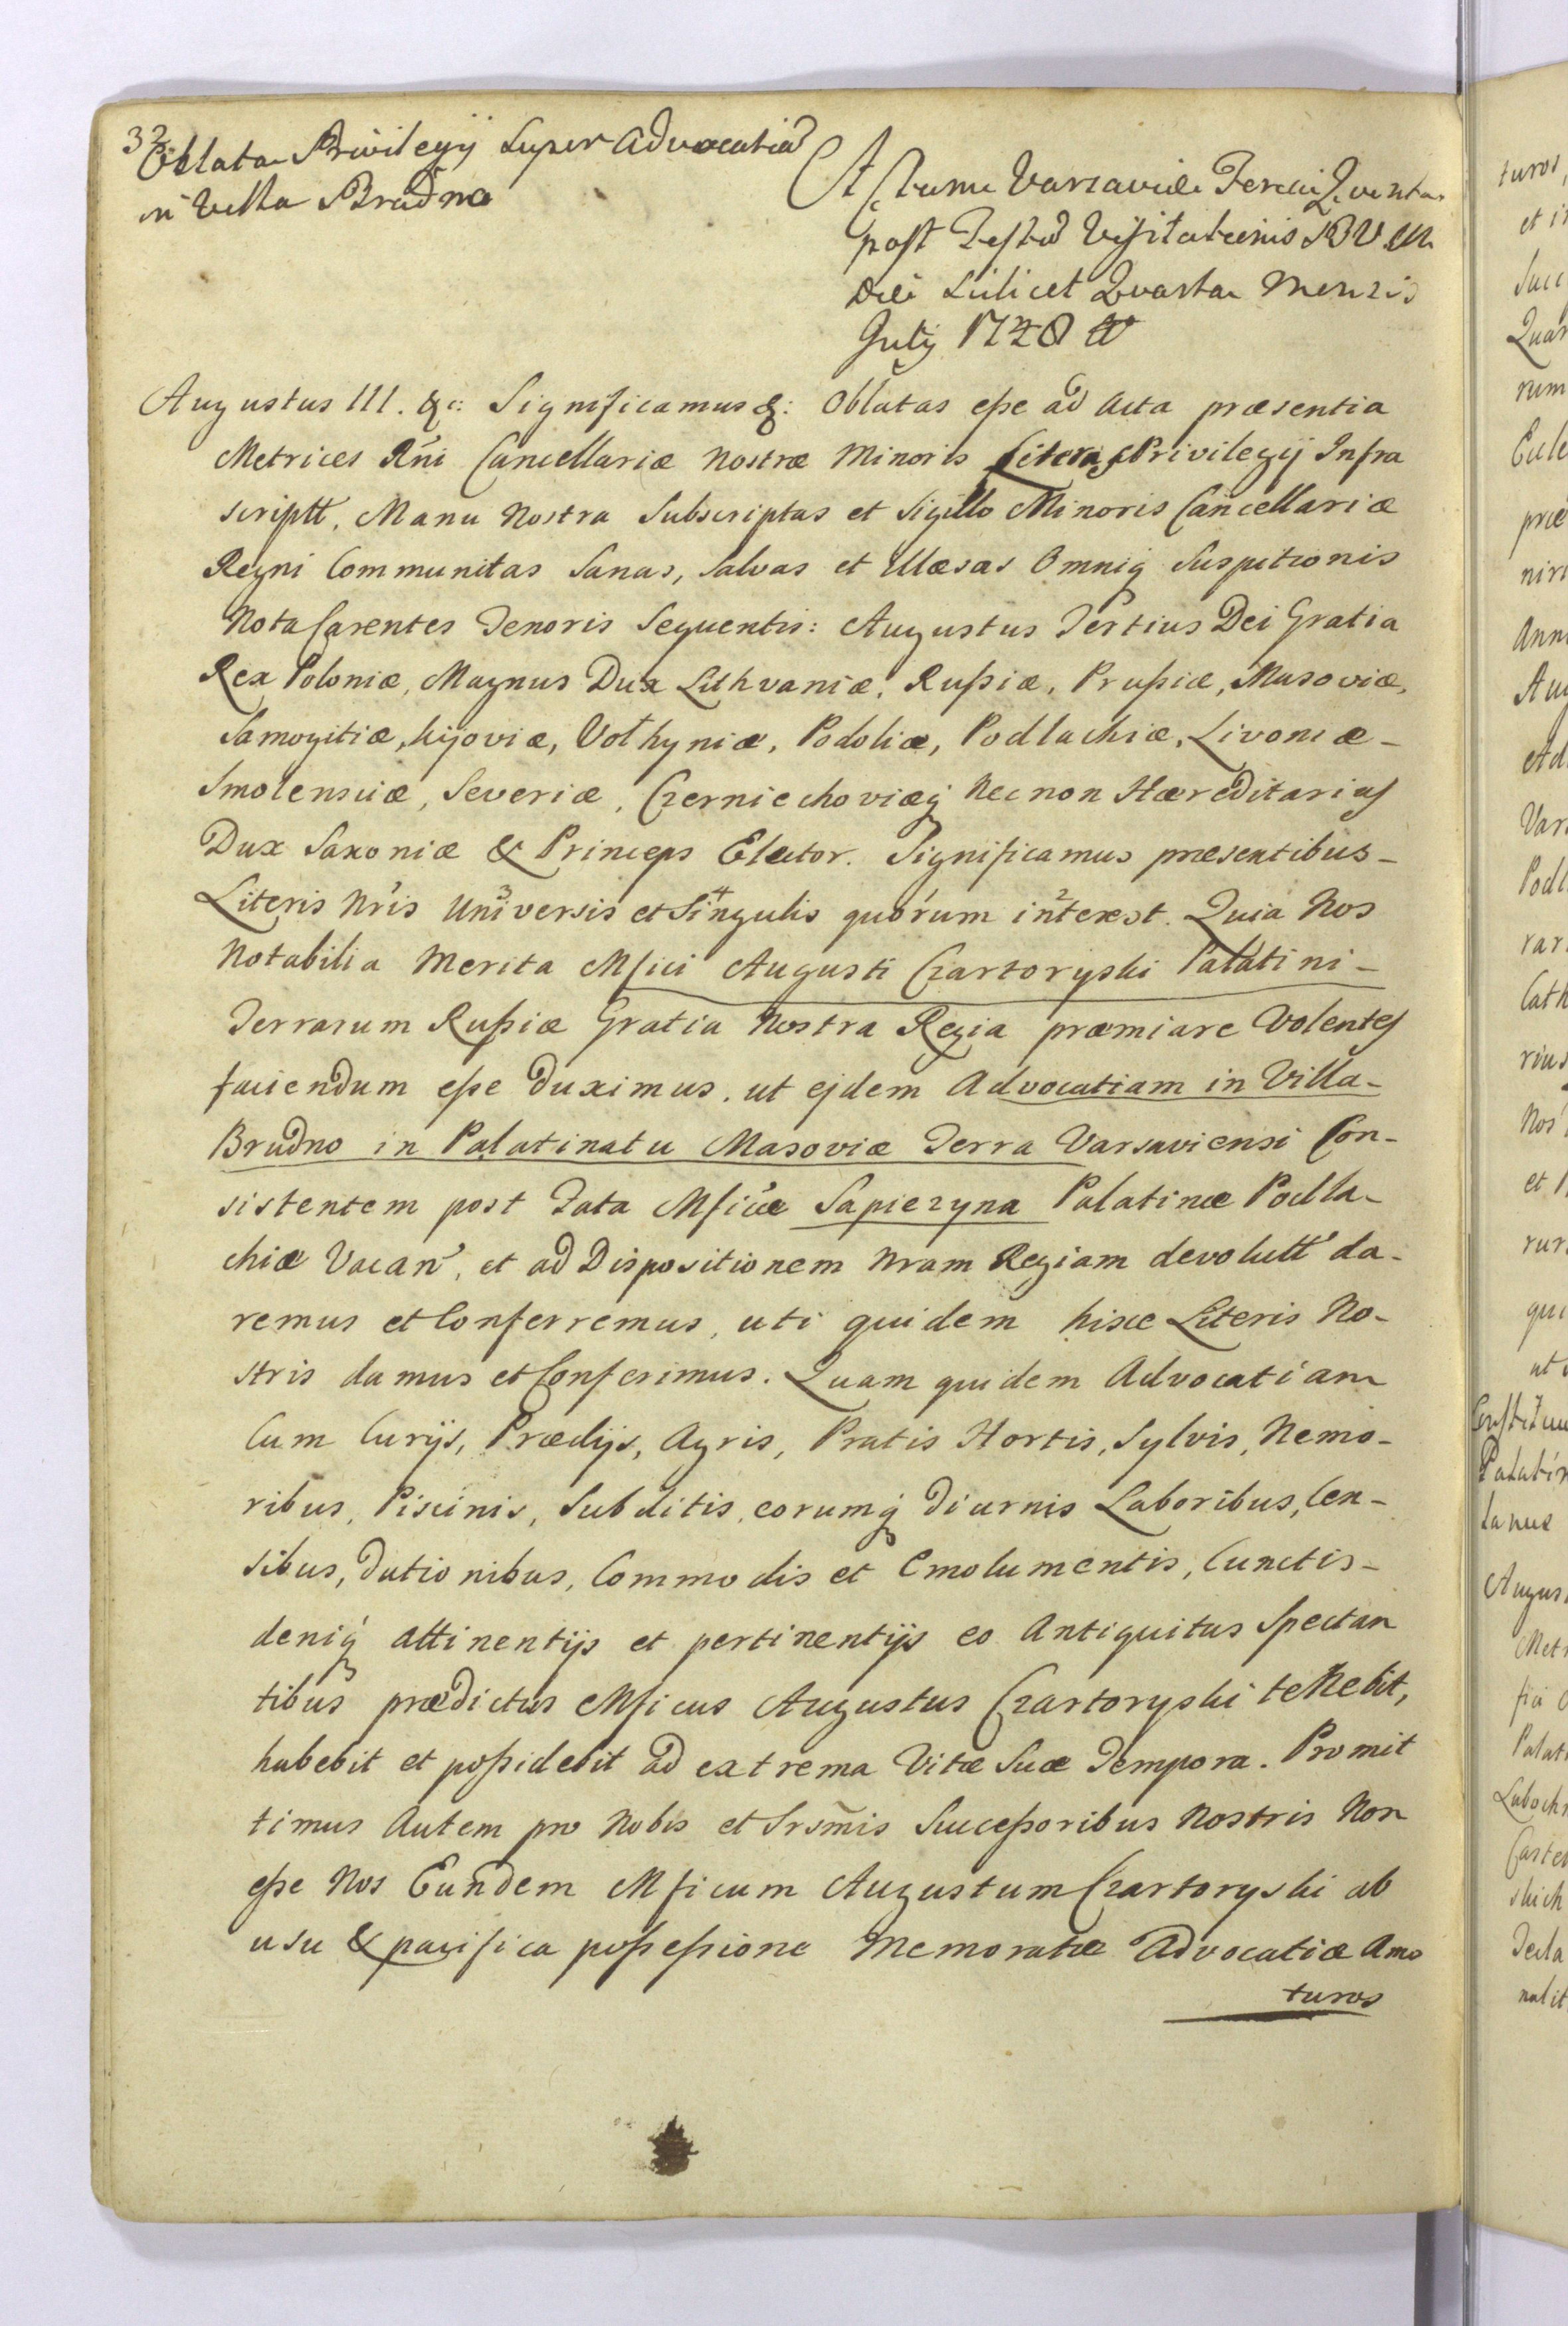 32
Oblata Privilegij super Advocatia
in Villa Brudno
Actum Varsaviæ Feria Quinta
post Festu Visitationis BVM
die scilicet Quarta Mensis
Julij 1748
Augustus III. &c: Significamus &: Oblatas eſse ad Acta præsentia
Metrices Rni Cancellariæ Nostræ Minoris Literas Privilegij Infra
scriptt, Manu Nostra Subscriptas et Sigillo Minoris Cancellariæ
Regni Communitas Sanas, Salvas et Illæsas Omniq Suspitionis
Nota Carentes Tenoris Sequentis: Augustus Tertius Dei Gratia
Rex Poloniæ, Magnus Dux Lithvaniæ, Ruſsiæ, Pruſsiæ, Masoviæ,
Samogitiæ, Kijoviæ, Volhyniæ, Podoliæ, Podlachiæ, Livoniæ –
Smolensciæ, Severiæ, Czerniechoviæq Necnon Hæreditarius
Dux Saxoniæ & Princeps Elector. Significamus præsentibus –
Literis Nris Universis et Singulis quorum interest. Quia Nos
Notabilia Merita Mfici Augusti Czartoryski Palatini –
Terrarum Ruſsiæ Gratia Nostra Regia præmiare Volentes
faciendum eſse duximus, ut ejdem Advocatiam in Villa –
Brudno in Palatinatu Masoviæ Terra Varsaviensi Con-
sistentem post Fata Mficæ Sapiezyna Palatinæ Podla-
chiæ Vacan, et ad Dispositionem Nram Regiam devolutt da-
remus et Conferremus, uti quidem hisce Literis No-
stris damus et Conferimus. Quam quidem Advocatiam
Cum Curijs, Prædijs, Agris, Pratis Hortis, Sylvis, Nemo-
ribus, Piscinis, Subditis, eorumq diurnis Laboribus, Cen-
sibus, dationibus, Commodis et Emolumentis, Cunctis –
deniq attinentijs et pertinentijs eo Antiquitus Spectan
tibus prædictus Mficus Augustus Czartoryski tenebit,
habebit et poſsidebit ad extrema Vitæ Suæ Tempora. Promit
timus Autem pro Nobis et Srsmis Succeſsoribus Nostris Non
eſse Nos Eundem Mficum Augustum Czartoryski ab
usu & pacifica poſseſsione Memoratæ Advocatiæ Amo
turos